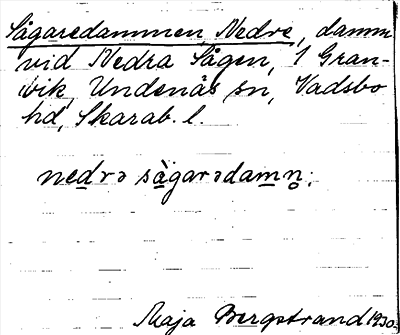 Sågaredammen, Nedre, damm
vid Nedra Sågen, 1 Gran-
vik, Undenäs sn, Vadsbo
hd, Skarab. l.
nedrə sågarədamn̥:
Maja Bergstrand 1930.